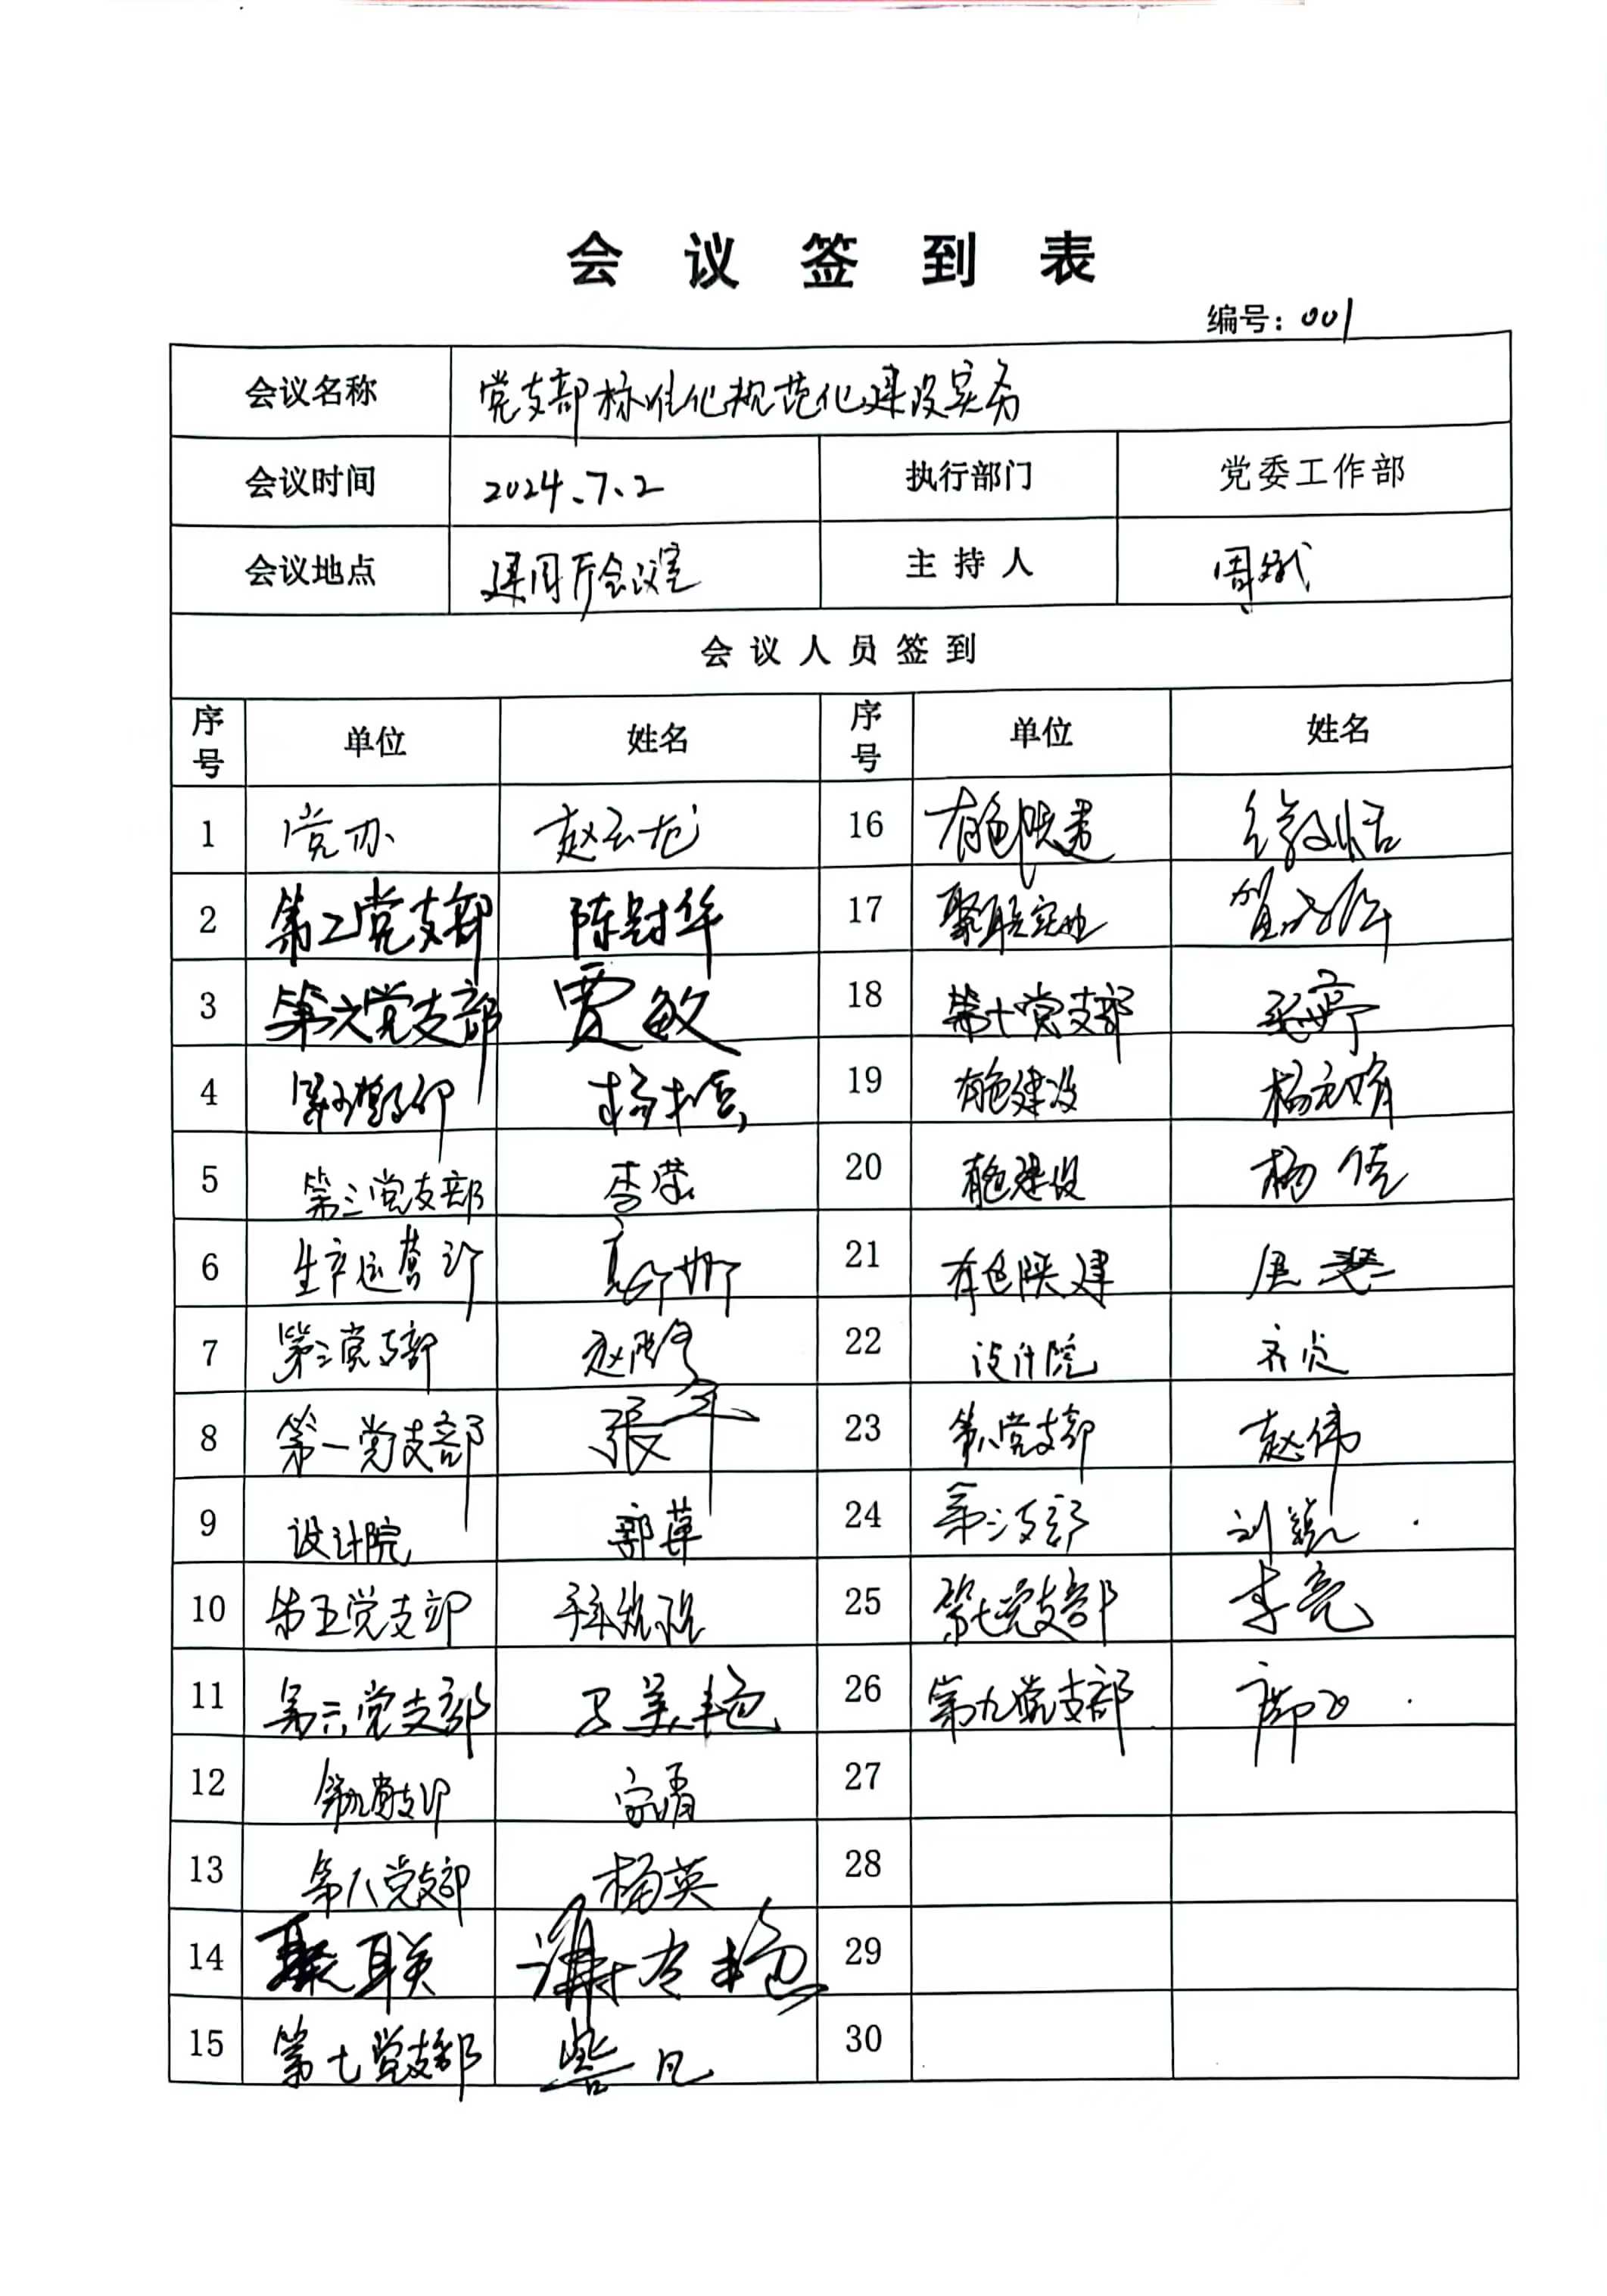 会议签到表
编号：001
会议名称 党支部标准化规范化建设实务
会议时间 2024.7.2 执行部门 党委工作部
会议地点 会议室 主持人 周斌
会议人员签到
序号 单位 姓名 序号 单位 姓名
1 党办 赵云龙 16 有色陕建
2 第二党支部 陈尉华 17 聚联实业
3 第六党支部 贾敏 18 第十党支部
4 19 有色建设
5 第三党支部 李荣 20 有色建设 杨倩
6 生产运营部 21 有色陕建
7 第三党支部 赵 22 设计院 齐炎
8 第一党支部 张军 23 第八党支部 赵伟
9 设计院 郭萍 24 第二支部 刘
10 第五党支部 25 第七党支部 李亮
11 第六党支部 卫美艳 26 第九党支部
12 第九党支部 27
13 第八党支部 杨英 28
14 聚联 谢冬艳 29
15 第七党支部 30